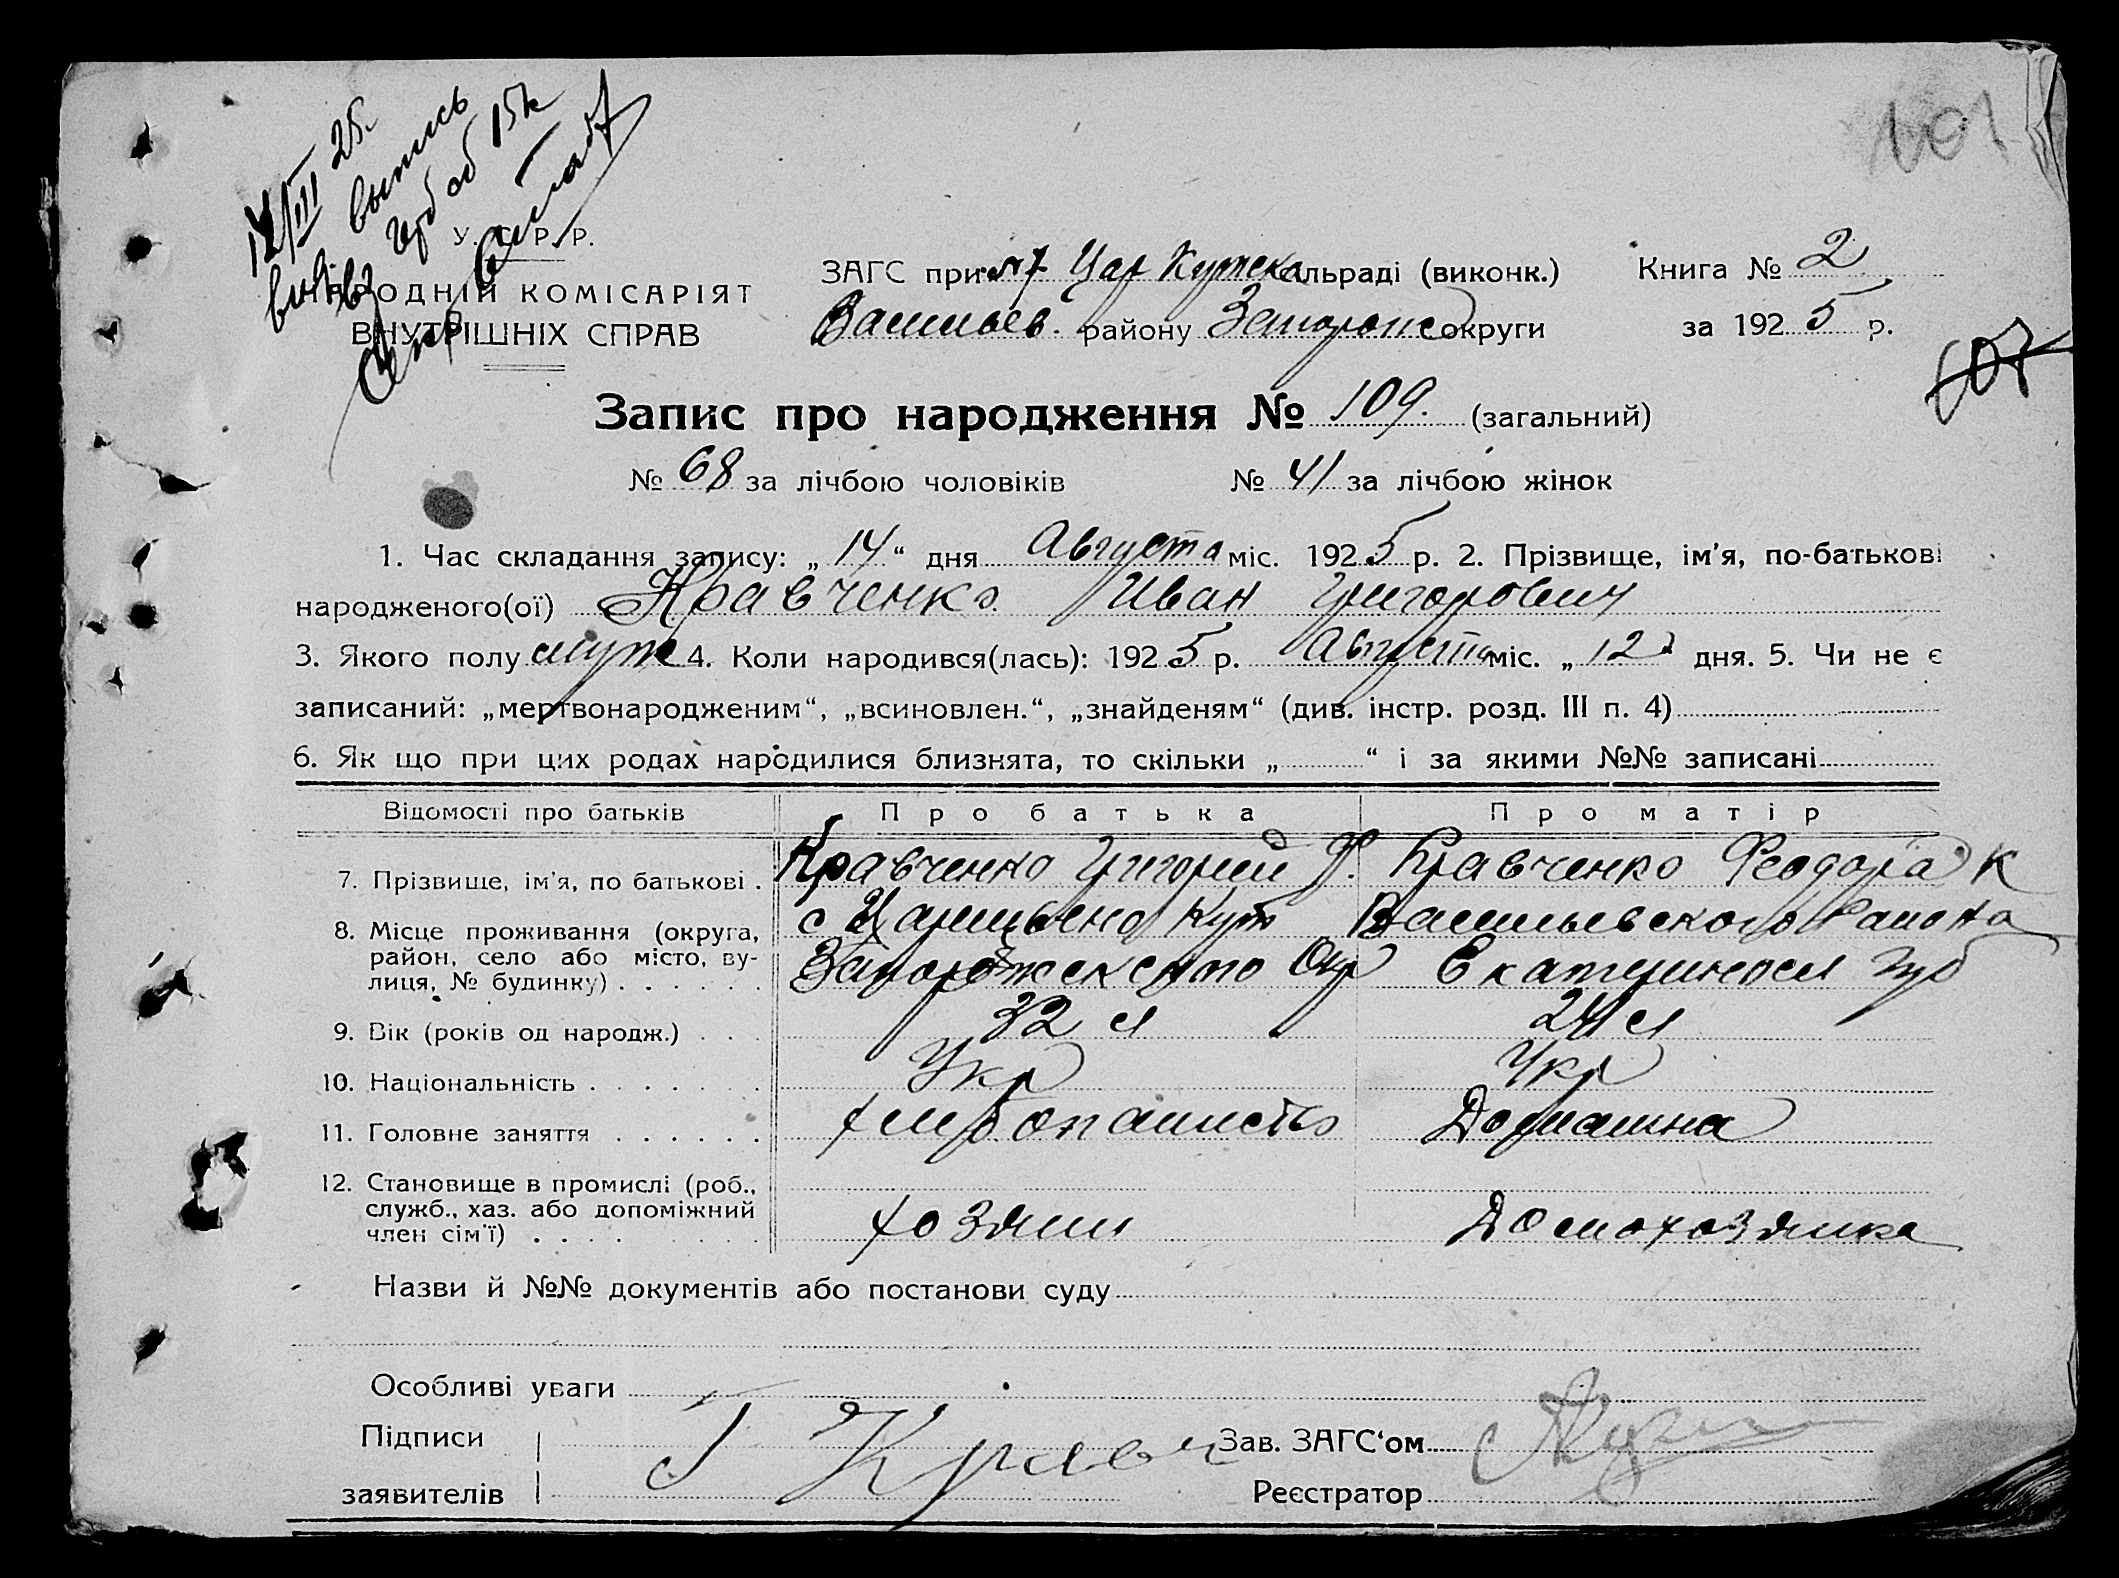 12/III 25г.
выпись
гербоб 15к
101
У. С. Р. Р.
НАРОДНІЙ КОМІСАРІЯТ
ВНУТРІШНІХ СПРАВ
ЗАГС при Цар Кутска сільраді (виконк.)
Васильев. району Запорож округи
Книга № 2
за 1925 р.
107
Запис про народження № 109. (загальний)
№ 68 за лічбою чоловіків № 41 за лічбою жінок
1. Час складання запису: „14“ дня Августа міс. 1925 р. 2. Прізвище, ім’я, по-батькові
народженого(ої) Кравченко Иван Григорович
3. Якого полу муж 4. Коли народився(лась): 1925 р. Августа міс. „12“ дня. 5. Чи не є
записаний: „мертвонародженим“, „всиновлен.“, „знайденям“ (див. інстр. розд. III п. 4)
6. Як що при цих родах народилися близнята, то скільки „ “ і за якими №№ записані
Відомості про батьків Про батька Про матір
7. Прізвище, ім’я, по батькові . Кравченко Григорий Ф. Кравченко Феодора К
8. Місце проживання (округа,
район, село або місто, ву-
лиця, № будинку) . . . . . .
с Царицыно Кут Васильевского Района
Запорожского Окр Екатериносл Губ
9. Вік (років од народж.) . . . 32 л 24 л
10. Національність . . . . . . . Укр Укр
11. Головне заняття . . . . . . хлебопашество Домашна
12. Становище в промислі (роб.,
служб., хаз. або допоміжний
член сім’ї) . . . . хозяин Домохозяйка
Назви й №№ документів або постанови суду
Особливі уваги
Підписи
заявителів
Г Кравч
Зав. ЗАГС‘ом
Реєстратор